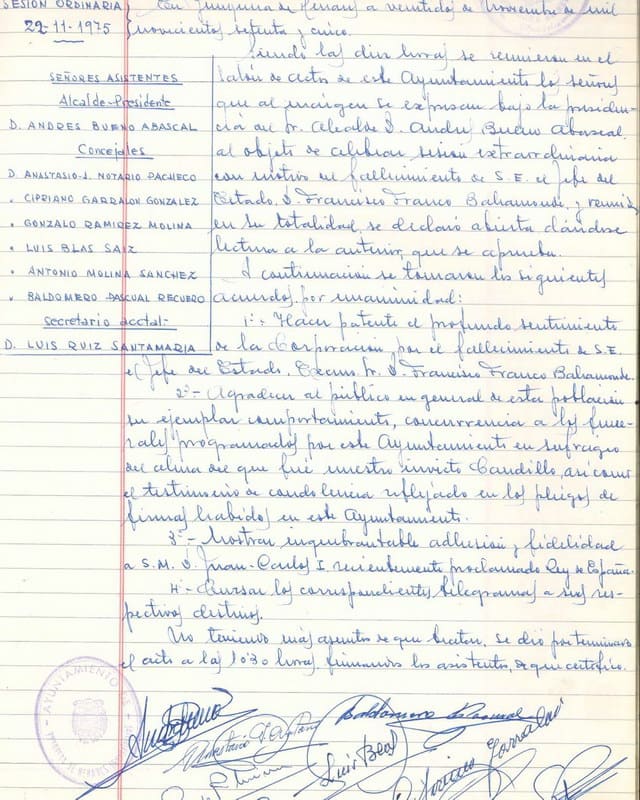 SESIÓN ORDINARIA
22-11-1975
SEÑORES ASISTENTES
Alcalde-Presidente
D. ANDRES BUENO ABASCAL
Concejales
D. ANASTASIO-J. NOTARIO PACHECO
" CIPRIANO GARRALON GONZALEZ
" GONZALO RAMIREZ MOLINA
" LUIS BLAS SAIZ
" ANTONIO MOLINA SANCHEZ
" BALDOMERO PASCUAL RECUERO
Secretario acctal:-
D. LUIS RUIZ SANTAMARIA
En Yunquera de Henares a veintidos de Noviembre de mil
novecientos setenta y cinco.
Siendo las diez horas se reunieron en el
salón de actos de este Ayuntamiento los señores
que al margen se expresan bajo la presiden-
cia del Sr. Alcalde D. Andres Bueno Abascal
al objeto de celebrar sesión extraordinaria
con motivo del fallecimiento de S.E. el Jefe del
Estado, D. Francisco Franco Bahamonde, y reunidos
en su totalidad, se declaró abierta dándose
lectura a la anterior, que se aprueba.
A continuación se tomaron los siguientes
acuerdos por unanimidad:
1º:- Hacer patente el profundo sentimiento
de la Corporación, por el fallecimiento de S.E.
el Jefe del Estado, Excmo. Sr. D. Francisco Franco Bahamonde.
2º- Agradecer al público en general de esta población
su ejemplar comportamiento, concurrencia a los fune-
rales programados por este Ayuntamiento en sufragio
del alma del que fué nuestro invicto Caudillo, así como
el testimonio de condolencia reflejado en los pliegos de
firmas habidos en este Ayuntamiento.
3º- Mostrar inquebrantable adhesión y fidelidad
a S.M. D. Juan-Carlos I, recientemente proclamado Rey de España.
4º- Cursar los correspondientes telegramas a sus res-
pectivos destinos.
No teniendo más asuntos de que tratar, se dió por terminado
el acto a las 10'30 horas firmando los asistentes, de que certifico.
AYUNTAMIENTO DE
Baldomero Pascual
Luis Blas
Cipriano Garralon